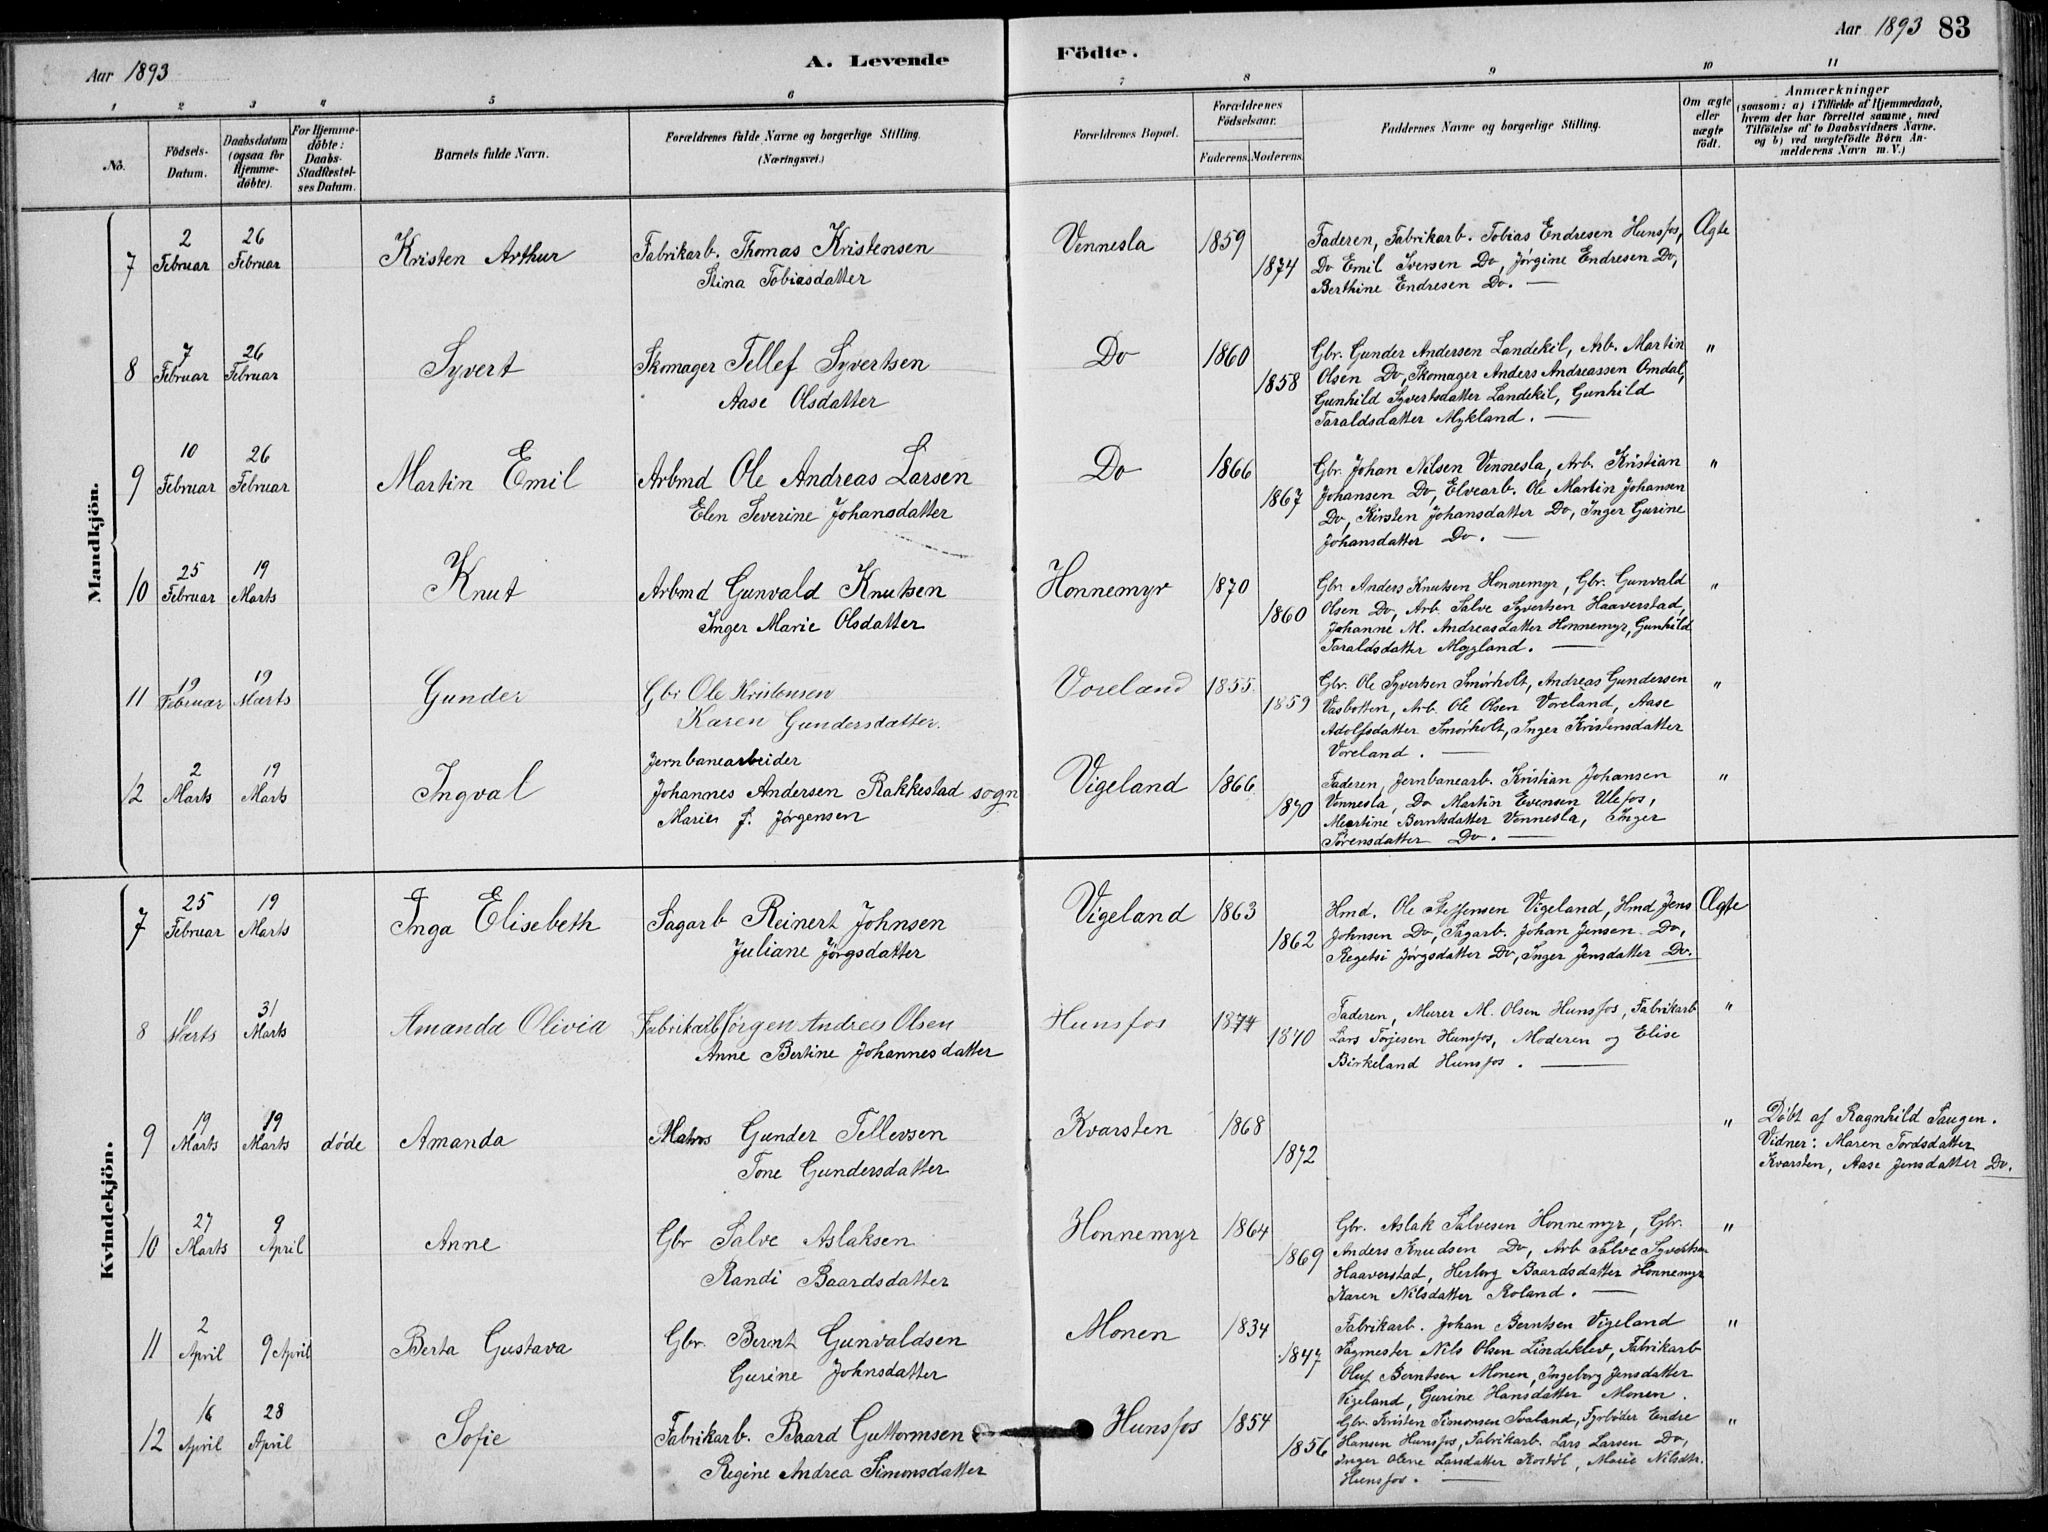 Aar 1893
A. Levende Födte.
Aar 1893 83
1 2 3 4 5 6 7 8 9 10 11
No.
Födsels-Datum.
Daabsdatum (ogsaa for Hjemmedöbte).
For Hjemmedöbte: Daabs-Stadfæstelses Datum.
Barnets fulde Navn.
Forældrenes fulde Navne og borgerlige Stilling. (Næringsvei.)
Forældrenes Bopæl.
Forældrenes Födselsaar.
Faderens. Moderens.
Faddernes Navne og borgerlige Stilling.
Om ægte eller uægte födt.
Anmærkninger
(saasom: a) i Tilfælde af Hjemmedaab, hvem der har forrettet samme, med Tilföielse af to Daabsvidners Navne, og b) ved uægtefödte Børn Anmelderens Navn m. V.)
Mandkjön.
7 2 Februar 26 Februar Kristen Arthur Fabrikarb. Thomas Kristensen Vennesla 1859 Faderen, Fabrikarb. Tobias Endresen Hunsfos, Ægte
Stina Tobiasdatter 1874 Do Emil Iversen Do, Jørgine Endresen Do,
Berthine Endresen Do. —
8 7 Februar 26 Februar Syvert Skomager Tellef Syvertsen Do 1860 Gbr. Gunder Andersen Landekil, Arb. Martin "
Aase Olsdatter 1858 Olsen Do, Skomager Anders Andreassen Omdal,
Gunhild Syvertsdatter Landekil, Gunhild
Taraldsdatter Mykland. —
9 10 Februar 26 Februar Martin Emil Arbmd Ole Andreas Larsen Do 1866 Gbr. Johan Nilsen Vennesla, Arb. Kristian "
Elen Severine Johansdatter 1867 Johansen Do, Elvearb. Ole Martin Johansen
Do, Kirsten Johansdatter Do, Inger Gurine
Johansdatter Do. —
10 25 Februar 19 Marts Knut Arbmd Gunvald Knutsen Honnemyr 1870 Gbr. Anders Knutsen Honnemyr, Gbr. Gunvald "
Inger Marie Olsdatter 1860 Olsen Do, Arb. Salve Syvertsen Haaverstad,
Johanne M. Andreasdatter Honnemyr, Gunhild
Taraldsdatter Moyland. —
11 19 Februar 19 Marts Gunder Gbr Ole Kristensen Voreland 1855 Gbr. Ole Syvertsen Smørholt, Andreas Gundersen "
Karen Gundersdatter. 1859 Vasbotten, Arb. Ole Olsen Voreland, Aase
Adolfsdatter Smørholt, Inger Kristensdatter
Voreland. —
12 2 Marts 19 Marts Ingval Jernbanearbeider
Johannes Andersen Rakkestad sogn Vigeland 1866 Faderen, Jernbanearb. Kristian Johansen "
Marie J. Jørgensen 1870 Vennesla, Do Martin Evensen Ulefos,
Martine Berntsdatter Vennesla, Inger
Sörensdatter Do. —
Kvindekjön.
7 25 Februar 19 Marts Inga Elisebeth Sagarb Reinert Johnsen Vigeland 1863 Hmd. Ole Steffensen Vigeland, Hmd Jens Ægte
Juliane Jørgsdatter 1862 Johnsen Do, Sagarb. Johan Jensen Do,
Regetsi Jørgsdatter Do, Inger Jensdatter Do.
8 Marts 31 Marts Amanda Olivia Fabrikarb Jørgen Andreas Olsen Hunsfos 1874 Faderen, Murer M. Olsen Hunsfos, Fabrikarb "
Anne Bertine Johannesdatter 1870 Lars Torjesen Hunsfos, Moderen og Elise
Birkeland Hunsfos. —
9 19 Marts 19 Marts døde Amanda Matros Gunder Tellevsen Kvarsten 1868 " Døbt af Ragnhild Saugen.
Tone Gundersdatter 1872 Vidner: Maren Tordsdatter
Kvarsten, Aase Jensdatter Do.
10 27 Marts 9 April Anne Gbr Salve Aslaksen Honnemyr 1864 Gbr. Aslak Salvesen Honnemyr, Gbr. "
Randi Baardsdatter 1869 Anders Knudsen Do, Arb Salve Syvertsen
Haaverstad, Herborg Baardsdatter Honnemyr
Karen Nilsdatter Roland. —
11 2 April 9 April Berta Gustava Gbr. Bernt Gunvaldsen Monen 1834 Fabrikarb. Johan Berntsen Vigeland "
Gurine Johnsdatter 1847 Sagmester Nils Olsen Lindeklev, Fabrikarb
Oluf Berntsen Monen, Ingeborg Jensdatter
Vigeland, Gurine Hansdatter Monen.
12 16 April 28 April Sofie Fabrikarb. Baard Guttormsen Hunsfos 1854 Gbr. Kristen Simonsen Svaland, Fyrbøder Endre "
Regine Andrea Simonsdatter 1856 Hansen Hunsfos, Fabrikarb. Lars Larsen Do,
Inger Olene Larsdatter Kostöl, Marie Nilsdtr.
Hunsfos. —